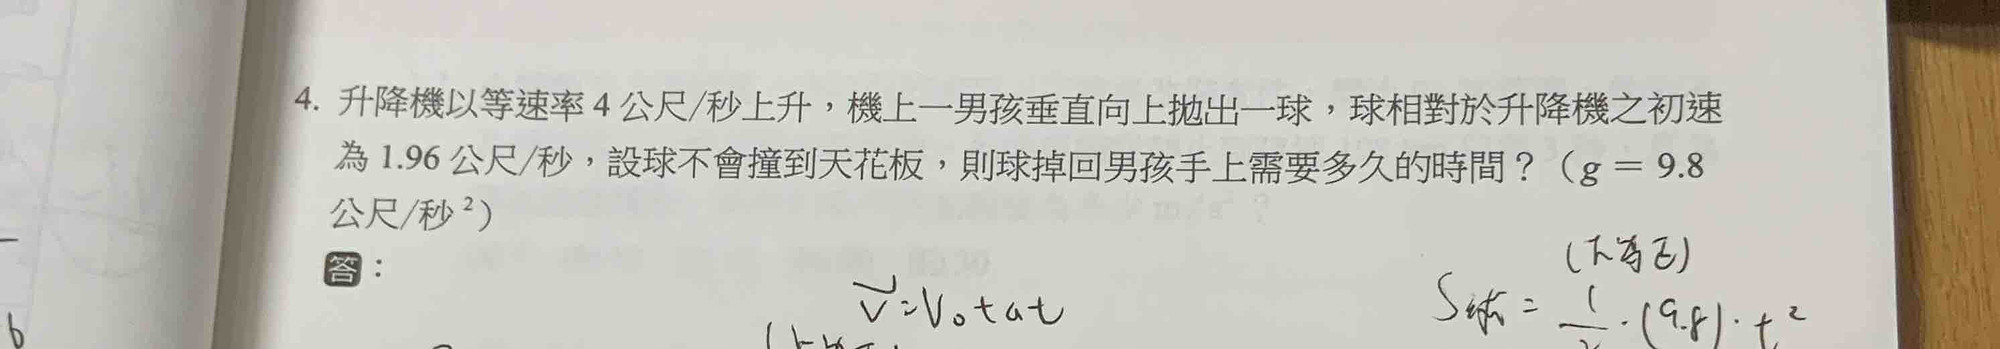 4. 升降機以等速率 4 公尺/秒上升，機上一男孩垂直向上拋出一球，球相對於升降機之初速
為 1.96 公尺/秒，設球不會撞到天花板，則球掉回男孩手上需要多久的時間？（g = 9.8
公尺/秒²）
答：
(下為正)
V=V₀+at
S球 = 1/2·(9.8)·t²
b